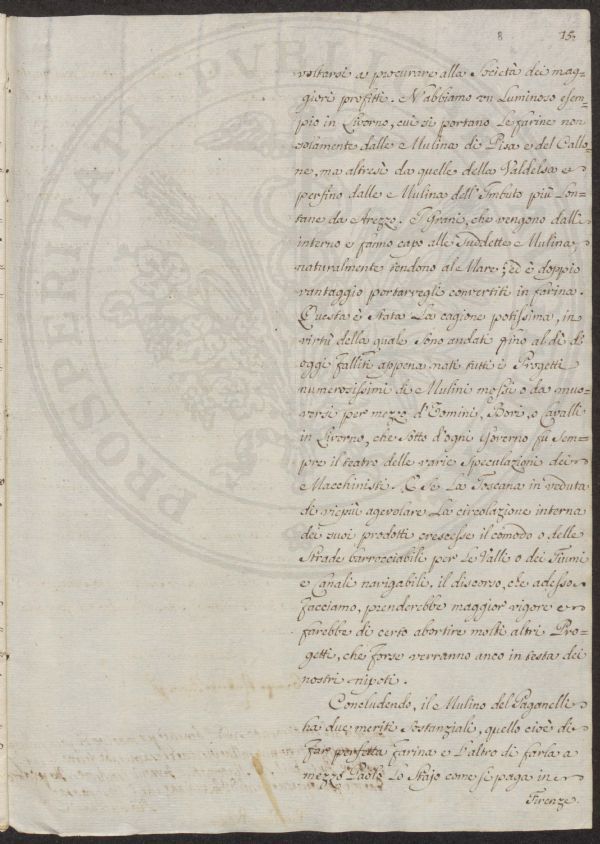 8 15
voltarsi a procurare alla Società dei mag=
giori profitti. N'abbiamo un Luminoso esem=
pio in Livorno, cui si portano Le farine non
solamente dalle Mulina di Pisa e del Callo=
ne, ma altresì da quelle della Valdelsa e
perfino dalle Mulina dell'Imbuto più Lon=
tane da Arezzo. I Grani, che vengono dall'
interno e fanno capo alle Suddette Mulina,
naturalmente tendono al Mare; ed è doppio
vantaggio portarvegli convertiti in farina.
Questa è Stata La cagione potissima, in
virtù della quale Sono andati fino al dì di
oggi falliti appena nati tutti i Progetti
numerosissimi di Mulini mossi o da muo=
versi per mezzo d'Uomini, Bovi, o Cavalli
in Livorno, che Sotto d'ogni Governo fù Sem=
pre il teatro delle varie Speculazioni dei
Macchinisti. E Se La Toscana in veduta
di viepiù agevolare La circolazione interna
dei suoi prodotti crescesse il comodo o delle
Strade barrocciabili per Le Valli o dei Fiumi
e Canali navigabili, il discorso, che adesso
facciamo, prenderebbe maggior vigore e
farebbe di certo abortire molti altri Pro=
getti, che forse verranno anco in testa dei
nostri nipoti.
Concludendo, il Mulino del Paganelli
ha due meriti Sostanziali, quello cioè di
far perfetta farina e L'altro di farla a
mezzo Paolo Lo Stajo come si paga in
Firenze.
PROSPERITATI PVBLICAE